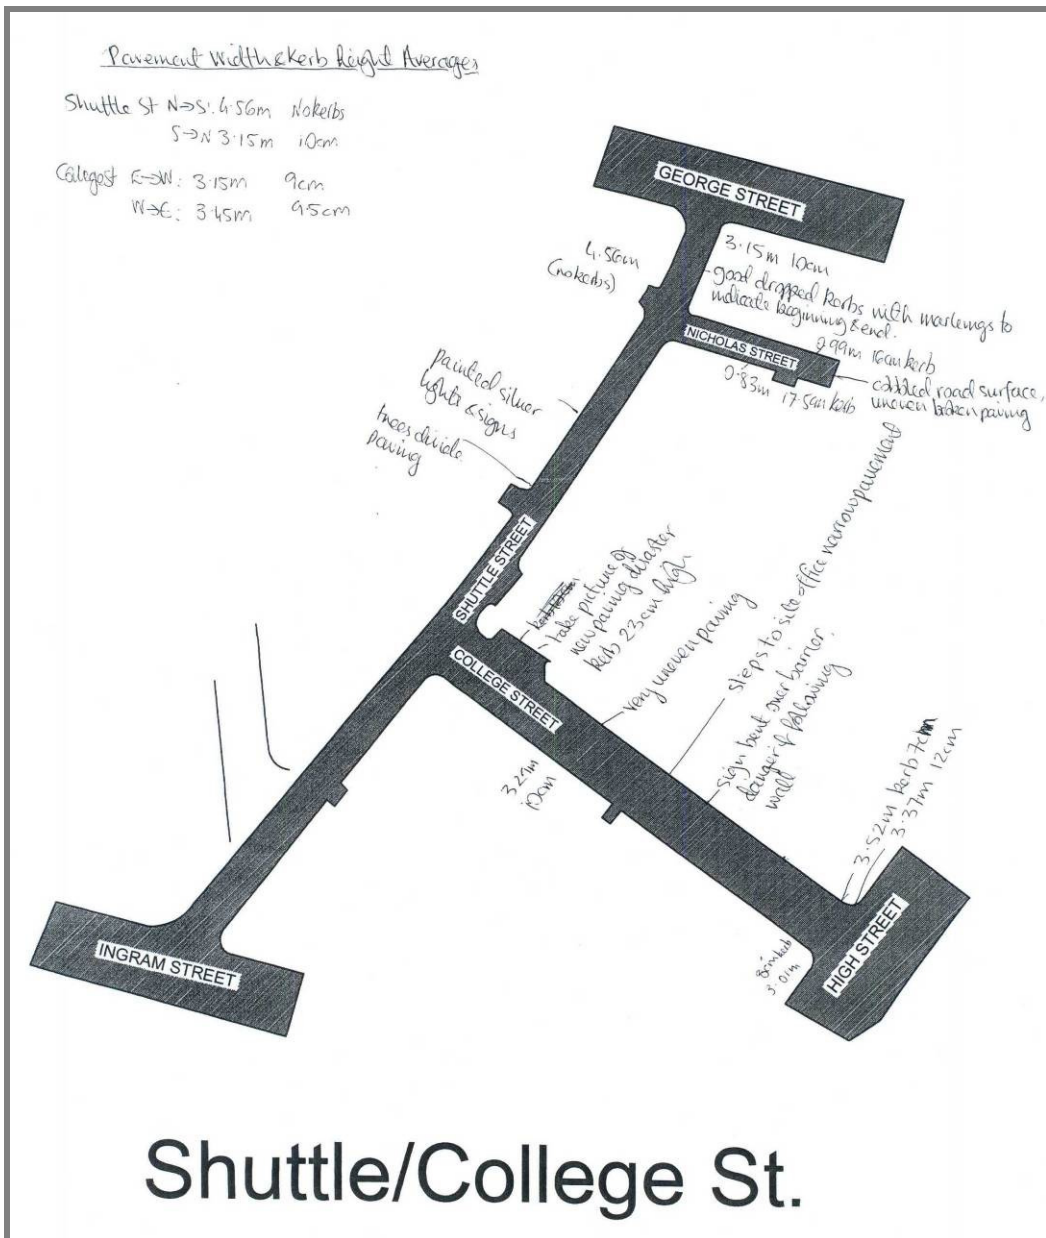 Pavement Width & Kerb height Averages
Shuttle St N→S: 4.56m No kerbs
S→N 3.15m 10cm
College st E→W: 3.15m 9cm
W→E: 3.45m 9.5cm
GEORGE STREET
4.56m
(no kerbs)
3.15m 10cm
good dropped kerbs with markings to
indicate beginning & end.
NICHOLAS STREET
0.99m 16cm kerb
0.83m 17.5cm kerb
cobbled road surface,
uneven broken paving
painted silver
lights & signs
trees divide
paving
SHUTTLE STREET
take picture of
new paving disaster
kerb 23cm high
COLLEGE STREET
very uneven paving
steps to site office narrow pavement
sign bent over barrier,
danger if following
wall
3.29m
10cm
3.52m kerb 7cm
3.37m 12cm
8cm kerb
3.01m
HIGH STREET
INGRAM STREET
Shuttle/College St.